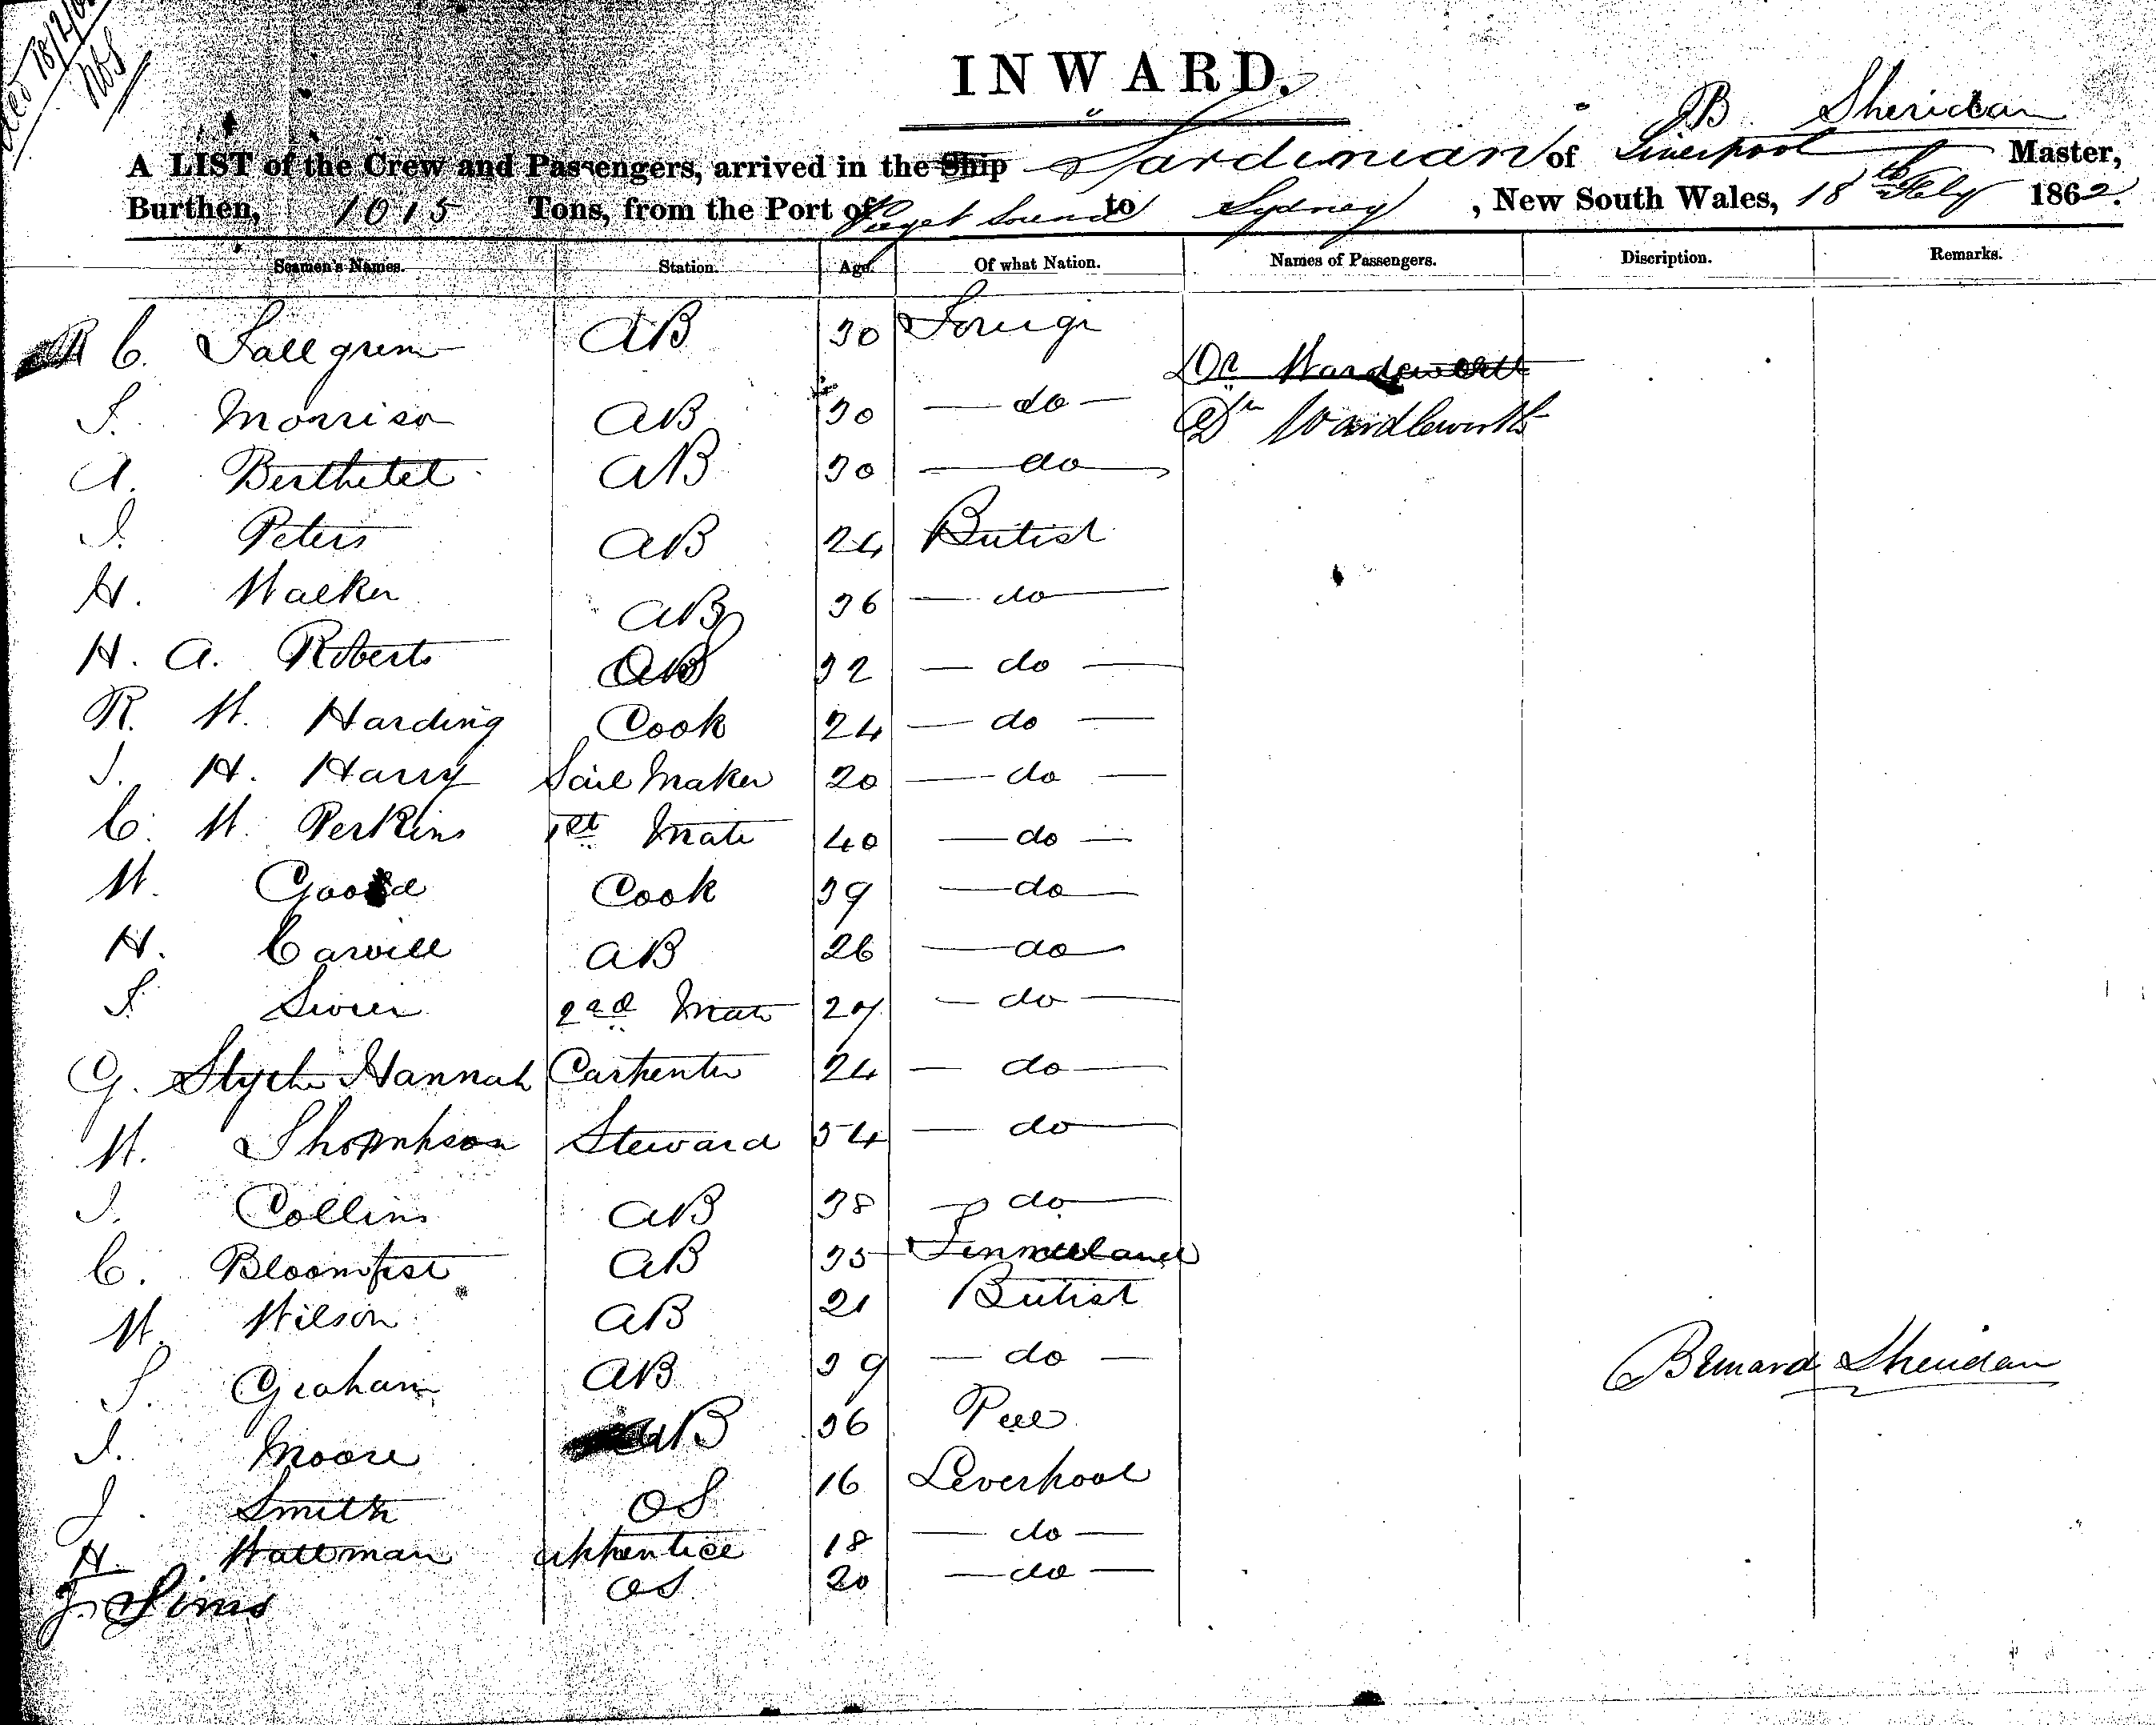 18/2/62
INWARD.
B Sheridan
A LIST of the Crew and Passengers, arrived in the Ship Sardinian of Liverpool Master,
Burthen, 1015 Tons, from the Port of Puget Sound to Sydney, New South Wales, 18th Feby 1862.
Seamen's Names. Station. Age. Of what Nation. Names of Passengers. Discription. Remarks.
C. Sallgren AB 30 Foreign
Dr Wardsworth
S. Morrison AB 30 do Dr Wardleworth
A. Berthelet AB 30 do
J. Peters AB 24 British
H. Walker AB 36 do
H. A. Roberts AB 32 do
R. W. Harding Cook 24 do
J. H. Harry Sail Maker 20 do
C. W. Perkins 1st Mate 40 do
W. Good Cook 39 do
H. Carvill AB 26 do
S. 2nd Mate 27 do
G. Styche Hannah Carpenter 24 do
W. Thompson Steward 54 do
J. Collins AB 38 do
C. AB 35
W. Wilson AB 21 British
S. Graham AB 39 do
Bernard Sheridan
J. Moore AB 36 Peel
J. Smith OS 16 Liverpool
H. apprentice 18 do
J. Sims OS 20 do